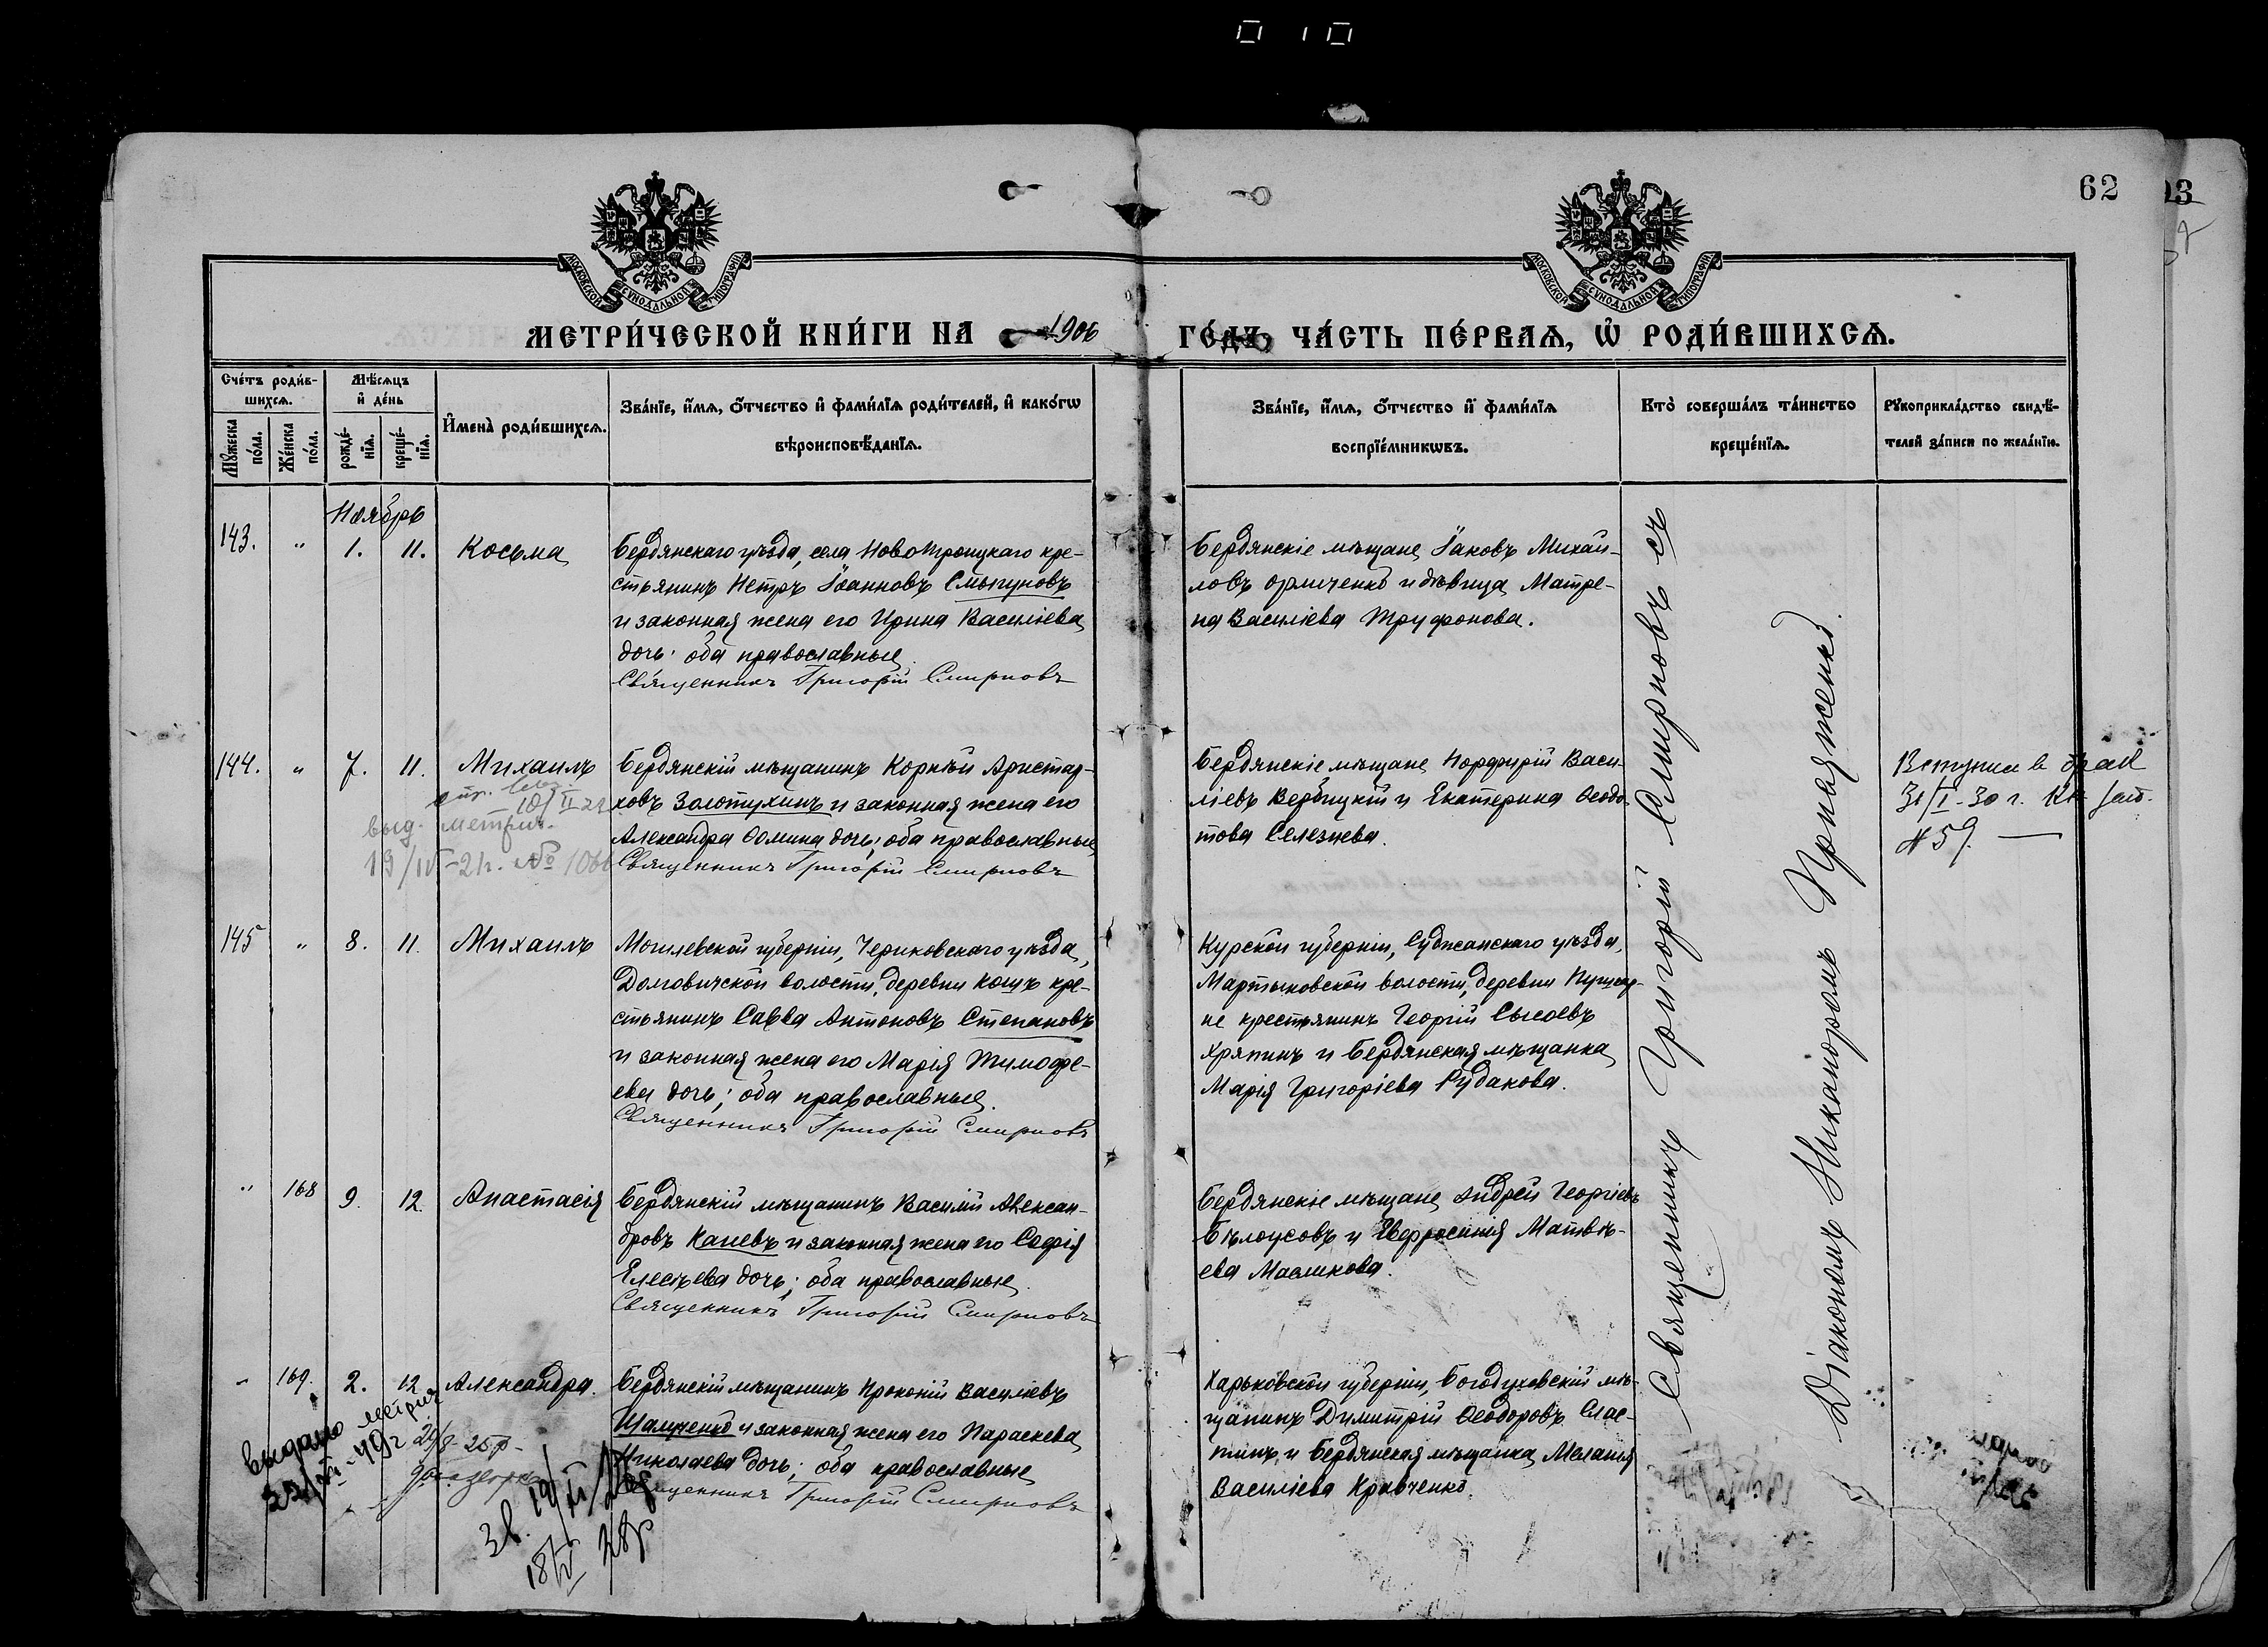 62
МОСКОВСКОЙ СѴНОДАЛЬНОЙ ТИПОГРАФІИ
МОСКОВСКОЙ СѴНОДАЛЬНОЙ ТИПОГРАФІИ
МЕТРИ́ЧЕСКОЙ КНИ́ГИ НА 1906 ГО́ДЪ, ЧА́СТЬ ПЕ́РВАѦ, Ѡ҆ РОДИ́ВШИХСѦ.
Сче́тъ роди́в-
шихсѧ.
Мꙋ́жеска по́ла.
Же́нска по́ла.
Мѣ́сѧцъ
и҆ де́нь
рожде́-
нїѧ.
креще́-
нїѧ.
И҆мена̀ роди́вшихсѧ.
Зва́нїе, и҆́мѧ, ѻ҆́тчество и҆ фами́лїѧ роди́телей, и҆ како́гѡ
вѣроисповѣ́данїѧ.
Зва́нїе, и҆́мѧ, ѻ҆́тчество и҆ фами́лїѧ
воспрїе́мникѡвъ.
Кто̀ соверша́лъ та́инство
креще́нїѧ.
Рꙋкоприкла́дство свидѣ́-
телей за́писи по жела́нїю.
Ноябрь
143. " 1. 11. Косьма
Бердянскаго уѣзда, села Новотроицкаго кре-
стьянинъ Петръ Іоанновъ Смыгуновъ
и законная жена его Ирина Василіева
дочь; оба православные.
Священникъ Григорій Смирновъ
Бердянскіе мѣщане Іаковъ Михаи-
ловъ и дѣвица Матре-
на Василіева Труфонова.
144. " 7. 11. Михаилъ
выд. метрич.
19/IV-21г. № 1066
Бердянскій мѣщанинъ Корнѣй Аристар-
ховъ Золотухинъ и законная жена его
Александра Ѳомина дочь; оба православные
Священникъ Григорій Смирновъ
Бердянскіе мѣщане Порфирій Васи-
ліевъ Вербицкій и Екатерина Ѳеодо-
това Селезнева.
Вступил в брак
31/I-30 г.
№ 59.
145 " 8. 11. Михаилъ
Могилевской губерніи, Чериковскаго уѣзда,
Долговичской волости, деревни Кошъ кре-
стьянинъ Савва Антоновъ Степановъ
и законная жена его Марія Тимофе-
ева дочь; оба православные.
Священникъ Григорій Смирновъ
Курской губерніи, Суджанскаго уѣзда,
Мартыновской волости, деревни Пушкар-
не крестьянинъ Георгій Сысоевъ
Хряпинъ и Бердянская мѣщанка
Марія Григоріева Рудакова.
" 168 9. 12. Анастасія
Бердянскій мѣщанинъ Василій Алексан-
дровъ Каневъ и законная жена его Софія
Елесѣева дочь; оба православные.
Священникъ Григорій Смирновъ
Бердянскіе мѣщане Андрей Георгіевъ
Бѣлоусовъ и Евфросинія Матвѣ-
ева Масликова.
" 169. 2. 12 Александра.
выдано метрич
Бердянскій мѣщанинъ Прокопій Василіевъ
и законная жена его Параскева
Николаева дочь; оба православные
Священникъ Григорій Смирновъ
Харьковской губерніи, Богодуховскій мѣ-
щанинъ Димитрій Ѳеодоровъ Слас-
тинъ и Бердянская мѣщанка Меланія
Василіева Кравченко.
Священникъ Григорій Смирновъ съ
Діакономъ Никаноромъ Принаженко.